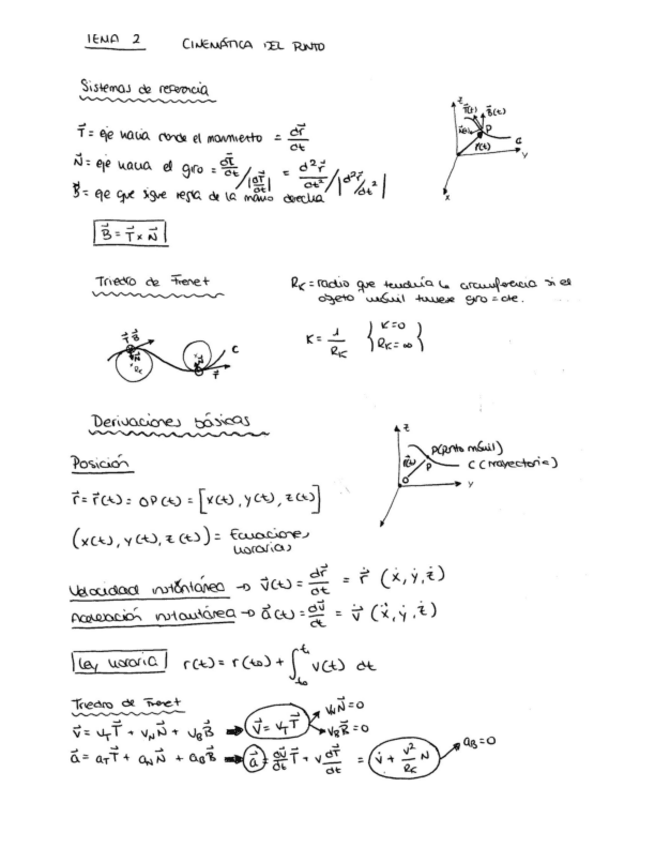 TEMA 2 CINEMÁTICA DEL PUNTO
Sistemas de referencia
T⃗ = eje hacia donde el movimiento = dr⃗/dt
N⃗ = eje hacia el giro = dT⃗/dt / |dT⃗/dt| = d²r⃗/dt² / |d²r⃗/dt²|
B⃗ = eje que sigue regla de la mano derecha
Z T⃗(t) B⃗(t) P r⃗(t) C Y X
B⃗ = T⃗ x N⃗
Triedro de Frenet
R_K = radio que tendría la circunferencia si el
objeto móvil tuviese giro = cte.
K = 1/R_K { K=0 R_K = ∞ }
T⃗ B⃗ N⃗ R_K N⃗ T⃗ C
Derivaciones básicas
Posición
z P(Punto móvil) P C (trayectoria) O y
r⃗ = r⃗(t) = OP(t) = [x(t), y(t), z(t)]
(x(t), y(t), z(t)) = Ecuaciones
horarias
Velocidad instantánea → v⃗(t) = dr⃗/dt = ṙ⃗ (ẋ, ẏ, ż)
Aceleración instantánea → a⃗(t) = dv⃗/dt = v̇⃗ (ẋ, ẏ, ż)
Ley horaria r(t) = r(t₀) + ∫_t₀^t v(t) dt
Triedro de Frenet
v⃗ = v_T T⃗ + v_N N⃗ + v_B B⃗ ➡ v⃗ = v_T T⃗ v_N N⃗ = 0 v_B B⃗ = 0
a⃗ = a_T T⃗ + a_N N⃗ + a_B B⃗ ➡ a⃗ = dv⃗/dt T⃗ + v dT⃗/dt = v̇ + v²/R_K N a_B = 0